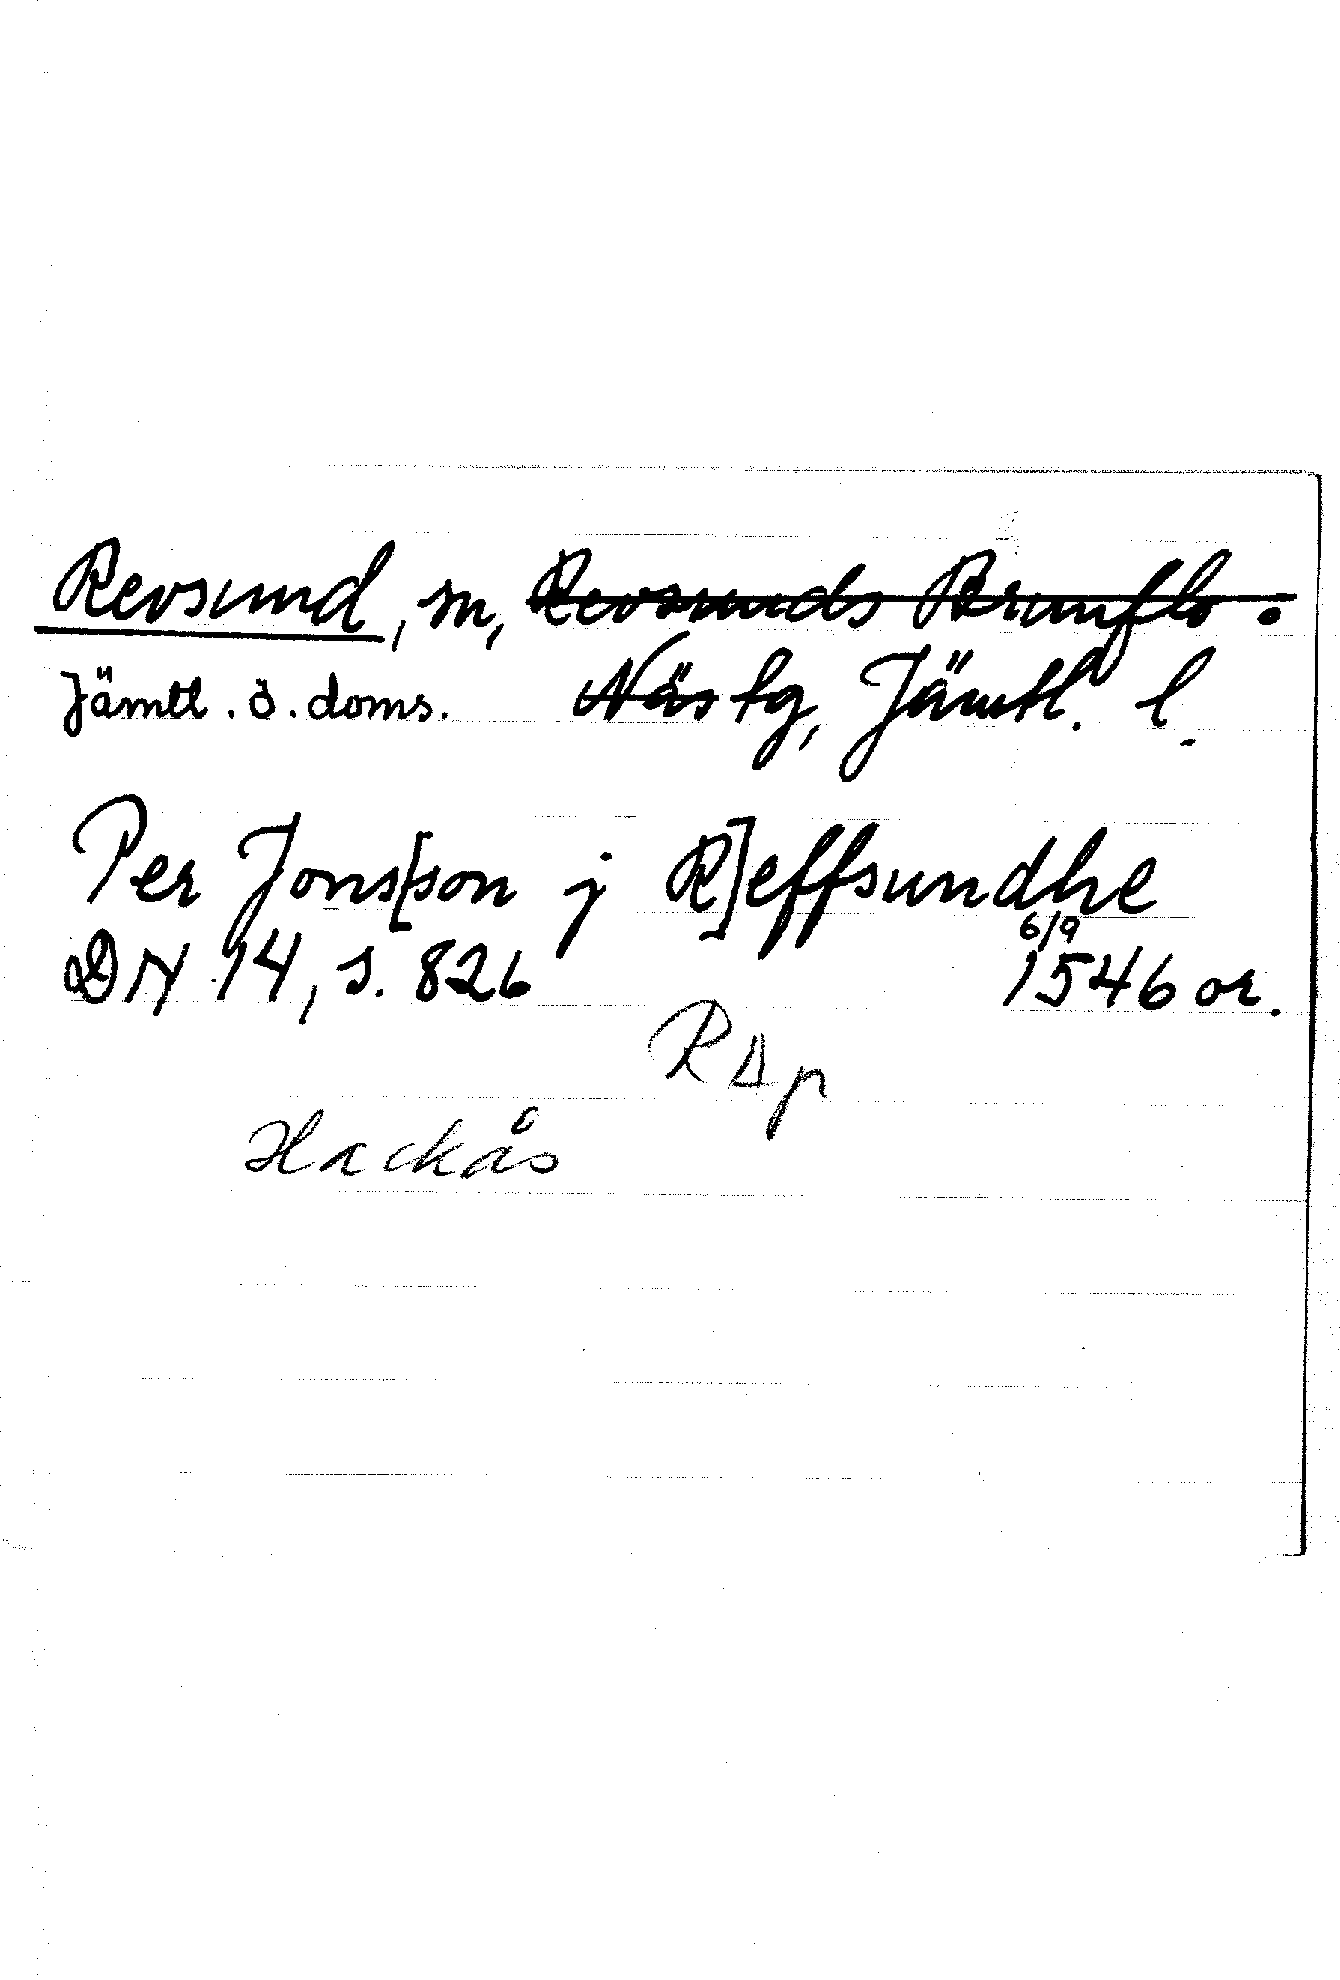 Revsund, sn, Revsunds Brunflo.
Jämtl. ö. doms. Näs tg, Jämtl. l.
Per Jons[son j R]effsundhe
DN 14, s. 826 6/9 1546 or.
Hackås